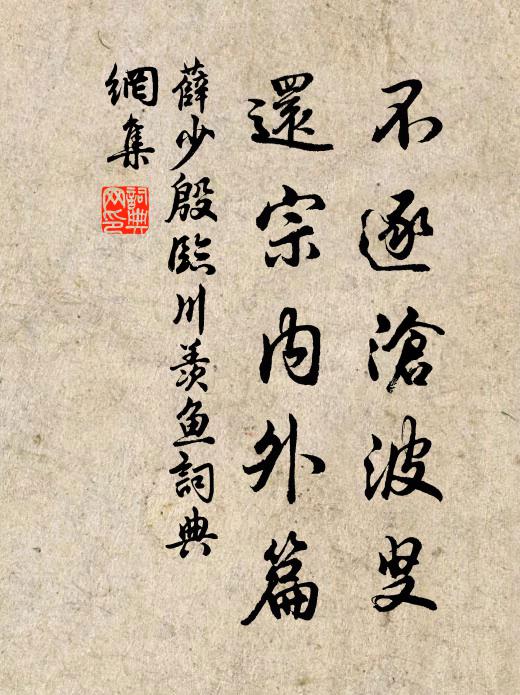 不逐滄波叟
還宗内外篇
薛少殷臨川羨魚詞典
網集
詞典網印